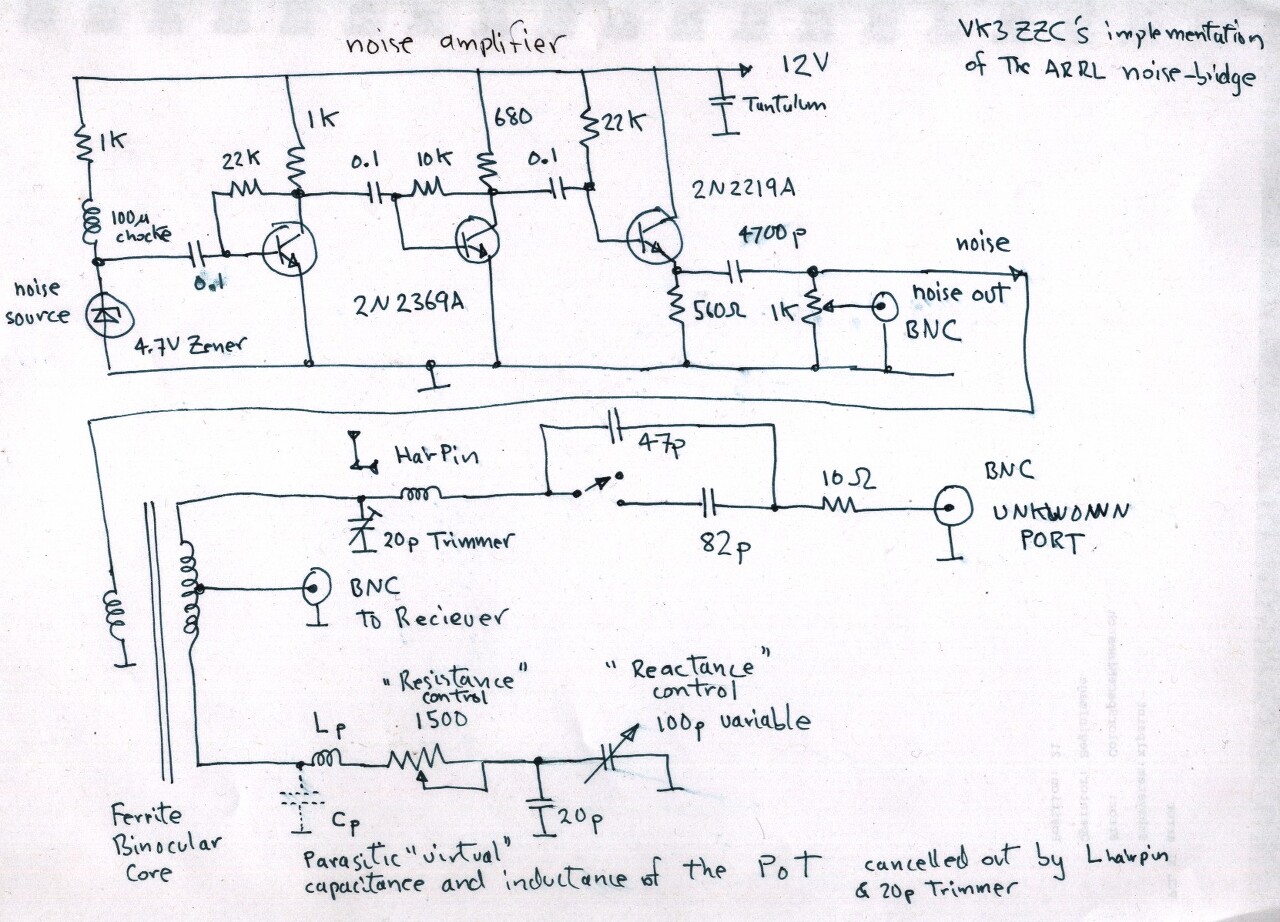 noise amplifier
VK3ZZC's implementation
of The ARRL noise-bridge
12V
Tuntulum
1K
1K
680
22K
22K
0.1
10K
0.1
2N2219A
100µ
chocke
4700p
noise
0.1
noise
source
2N2369A
560Ω
1K
noise out
BNC
4.7V Zener
HairPin
47p
10Ω
BNC
UNKWOWN
PORT
20p Trimmer
82p
BNC
To Reciever
"Resistance"
control
1500
"Reactance"
control
100p variable
Lp
Cp
20p
Ferrite
Binocular
Core
Parasitic "virtual"
capacitance and inductance of the PoT
cancelled out by Lhairpin
& 20p Trimmer